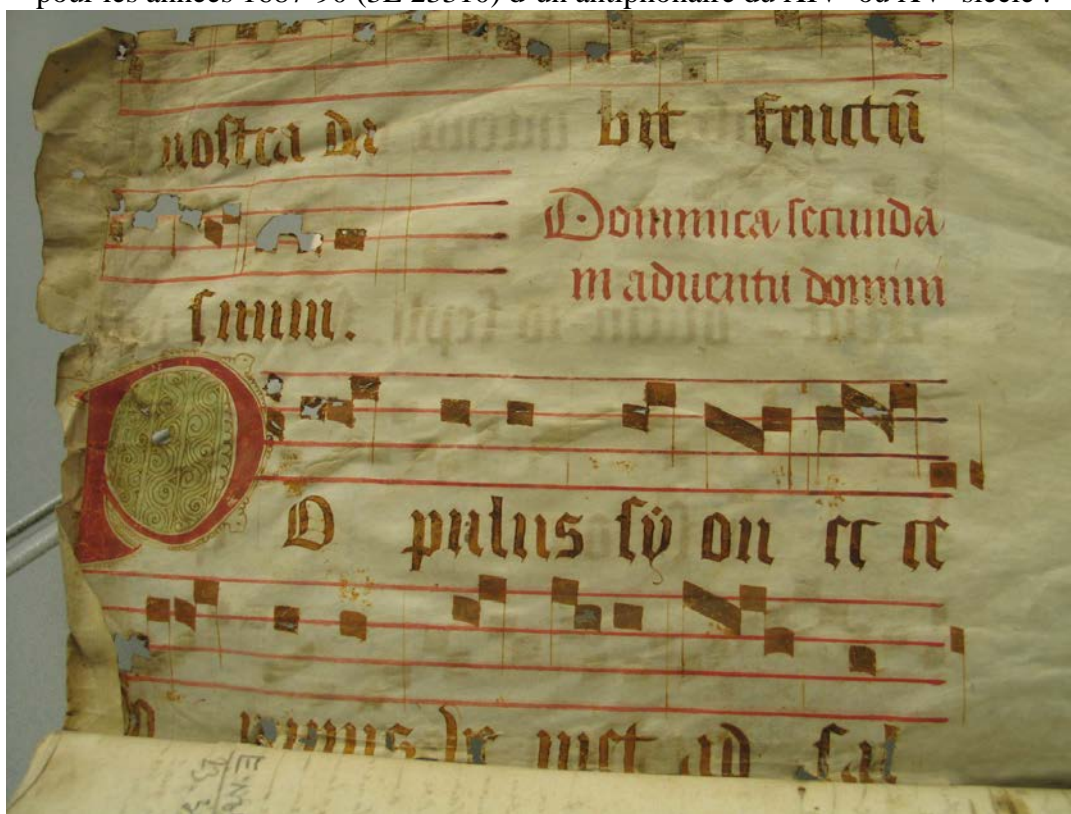 pour les années d'un antiphonaire du ou siècle :
noſtra da bit fructū
Dominica ſecunda
in aduentu domini
ſuum.
P O pulus ſÿ on ec ce
ve niet ad ſal